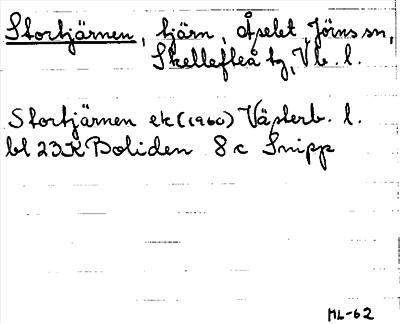 Stortjärnen, tjärn, Åselet, Jörns sn,
Skellefteå tg, Vb. l.
Stortjärnen ek (1960) Västerb. l.
bl 23K Boliden 8 c Snipp
ML-62